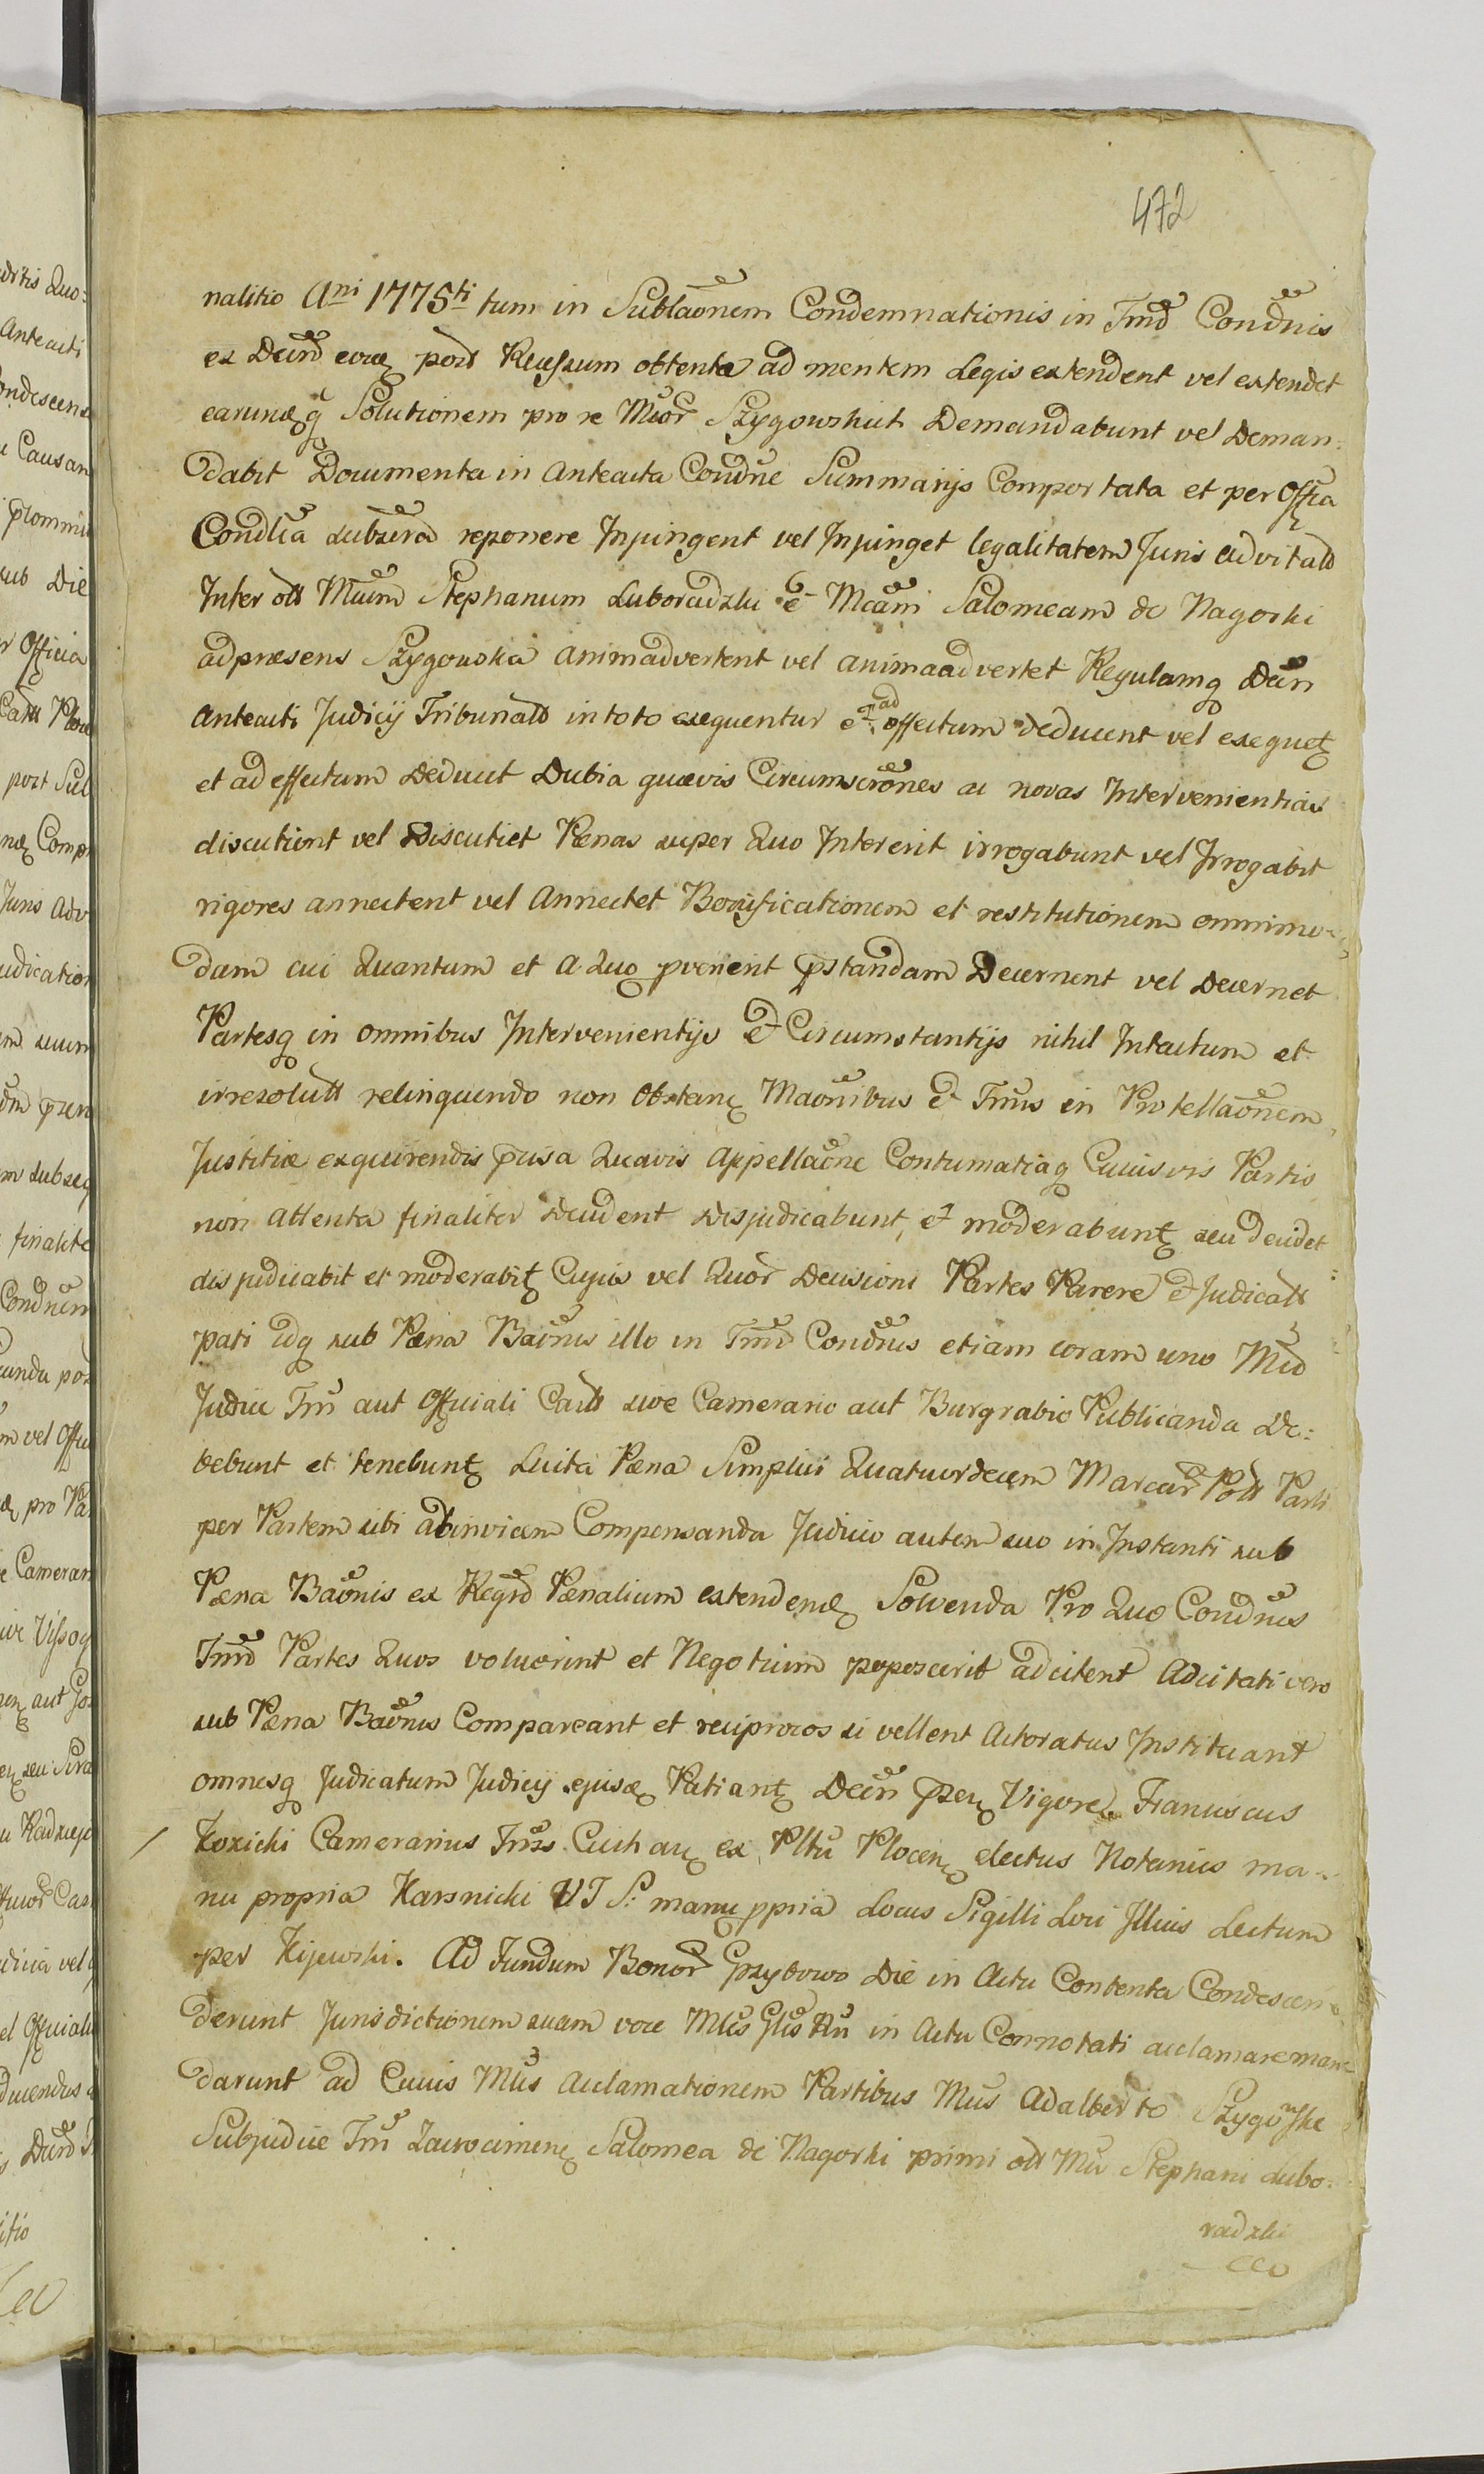 472
nalitio Ani 1775ti tum in Sublaonem Condemnationis in Tmd Condnis
ex Decrd eoræ post Recessum obtenta ad mentem Legis extendent vel extendet
earumq Solutionem pro re Mcor Szygowskich Demandabunt vel Deman:
dabit Documenta in anteacta Condne Summarijs Comportata et per Offia
Condlia subsera reponere Injungent vel Injunget legalitatem Juris advitals
Inter olt Mcum Stephanum Luboradzki et Mcam Salomeam de Nagorki
adpræsens Szygowska animadvertent vel animaadvertet Regulamq Decr
anteacti Judicij Tribunals in toto exequentur et ad effectum deducent vel exequet
et ad effectum Deducet Dubia quævis Circumscrones ac novas Intervenientias
discutient vel Discutiet Pænas super Quo Intererit irrogabunt vel Irrogabit
rigores annectent vel Annectet Bonificationem et restitutionem omnimo-
dam cui Quantum et a Quo pvenient pstandam Decernent vel Decernet
Partesq in omnibus Intervenientijs et Circumstantijs nihil Intactum et
irresolutt relinquendo non Obstan Maonibus et Tmis in Protellaonem
Justitiæ exquirendis prisa Quavis Appellaone Contumatiaq Cuiusvis Partis
non attenta finaliter decident disjudicabunt, et moderabunt seu decidet
disjudicabit et moderabit Cujus vel Quor Decisioni Partes Parere et Judicatt
pati idq sub Pæna Baonis illo in Tmd Condnis etiam coram uno Mco
Judice Tri aut Officiali Cast sive Camerario aut Burgrabio Publicanda De:
bebunt et tenebunt Luita Pæna Simplici Quatuordecem Marcar Poll Parti
per Partem sibi abinvicem Compensanda Judicio autem suo in Instanti sub
Pæna Baonis ex Regrd Pænalium extenden Solvenda Pro Quo Condnis
Tmd Partes Quos voluerint et Negotium poposcerit adcitent Adcitati vero
sub Pæna Baonis Compareant et reciprocos si vellent Actoratus Instituant
omnesq Judicatum Judicij ejusd Patiant Decri pser Vigore Franciscus
Kozicki Camerarius Trrs Ciechan ex Plttu Plocen electus Notarius ma-
nu propria Karsnicki V J S: manu ppria Locus Sigilli Loci Illius Lectum
per Kijewski. Ad Fundum Bonor Grzybowo Die in Actu Contenta Condescen
derunt Jurisdictionem suam voce Mlis Glis Rni in Actu Connotati acclamare man
darunt ad Cuius Mlis acclamationem Partibus Mcis Adalberto Szygowski
Subjudice Tri Zacrocimen Salomea de Nagorki primi olt Mci Stephani Lubo:
radzki